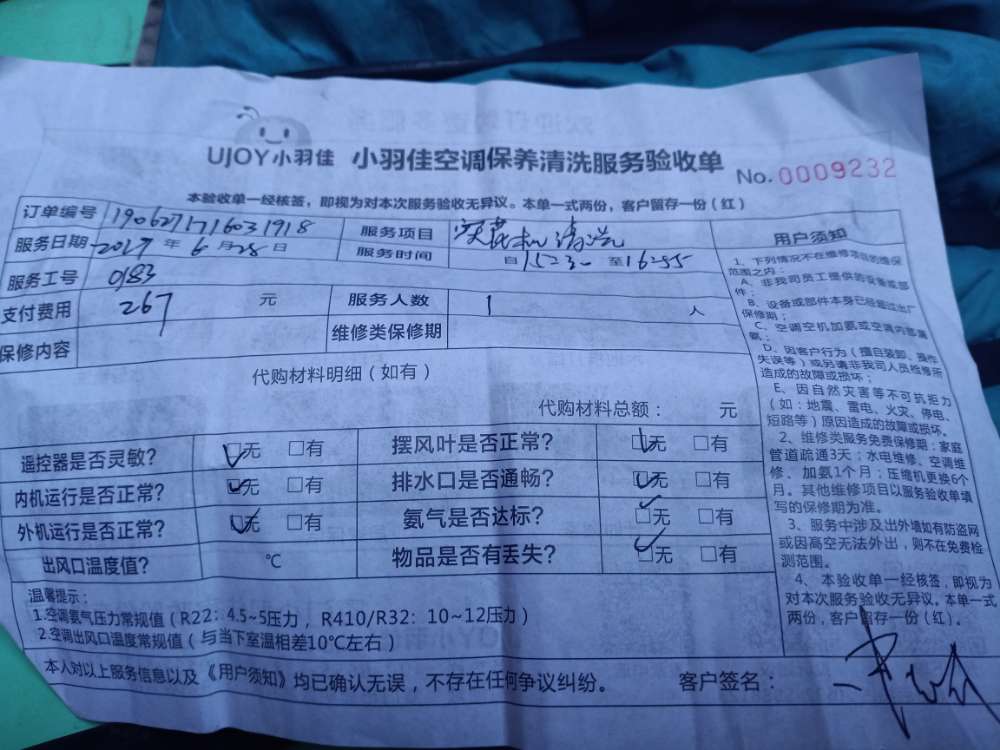 UJOY小羽佳 小羽佳空调保养清洗服务验收单 No.0009232
本验收单一经核签，即视为对本次服务验收无异议。本单一式两份，客户留存一份（红）
订单编号 1906271716031918 服务项目
服务日期 2019 年 6 月 28 日 服务时间 自 15:30 至 16:55
服务工号 0183
支付费用 267 元 服务人数 1 人
保修内容 维修类保修期
代购材料明细（如有）
代购材料总额： 元
遥控器是否灵敏？ ☑无 □有 摆风叶是否正常？ ☑无 □有
内机运行是否正常？ ☑无 □有 排水口是否通畅？ ☑无 □有
外机运行是否正常？ ☑无 □有 氨气是否达标？ ☑无 □有
出风口温度值？ ℃ 物品是否有丢失？ ☑无 □有
温馨提示：
1.空调氨气压力常规值（R22：4.5~5压力，R410/R32：10~12压力）
2.空调出风口温度常规值（与当下室温相差10℃左右）
本人对以上服务信息以及《用户须知》均已确认无误，不存在任何争议纠纷。 客户签名：
用户须知
1、下列情况不在维修项目的维保
范围之内：
A、非我司员工提供的设备或部
件；
B、设备或部件本身已经超过出厂
保修期；
C、空调空机加氨或空调内部漏
氨；
D、因客户行为（擅自装卸、操作
失误等）或另请非我司人员检修所
造成的故障或损坏；
E、因自然灾害等不可抗拒力
（如：地震、雷电、火灾、停电、
短路等）原因造成的故障或损坏。
2、维修类服务免费保修期：家庭
管道疏通3天；水电维修、空调维
修、加氨1个月；压缩机更换6个
月。其他维修项目以服务验收单填
写的保修期为准。
3、服务中涉及出外墙如有防盗网
或因高空无法外出，则不在免费检
测范围。
4、本验收单一经核签，即视为
对本次服务验收无异议。本单一式
两份，客户留存一份（红）。